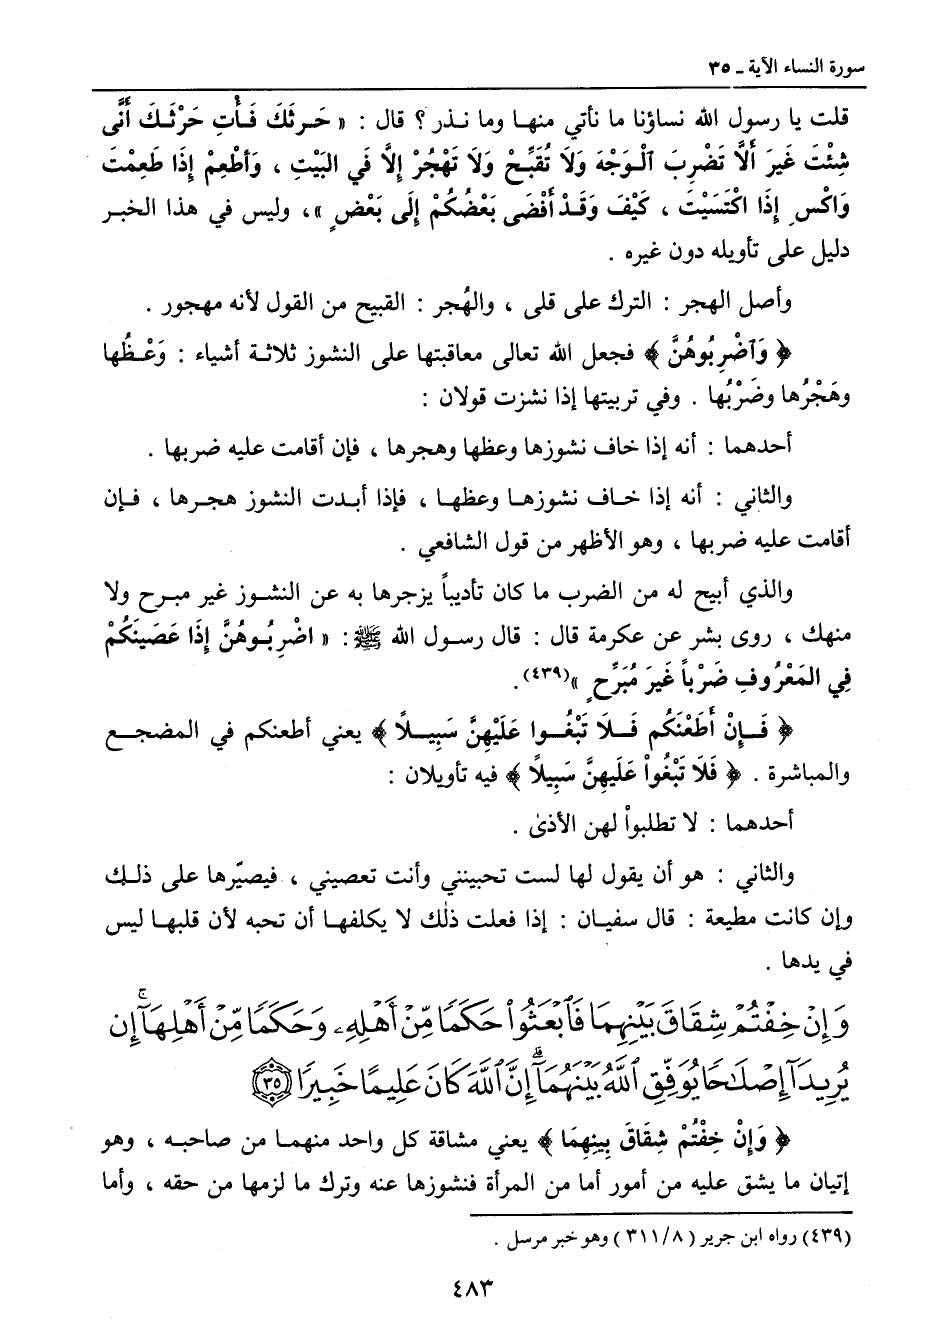 سورة النساء الآية ـ ٣٥
قلت يا رسول الله نساؤنا ما نأتي منها وما نذر ؟ قال : « حَرثَكَ فَأْتِ حَرْثَكَ أَنَّى
شِئْتَ غَيرَ أَلَّا تَضْرِبَ ٱلْوَجْهَ وَلَا تُقَبِّحْ وَلَا تَهْجُرْ إِلَّا فَي البَيْتِ ، وَأَطْعِمْ إِذَا طَعِمْتَ
وَاكْسِ إِذَا اكْتَسَيْتَ ، كَيْفَ وَقَدْ أَفْضَى بَعْضُكُمْ إِلَى بَعْضٍ »، وليس في هذا الخبر
دليل على تأويله دون غيره .
وأصل الهجر : الترك على قلى ، والهُجر : القبيح من القول لأنه مهجور .
﴿ وَٱضْرِبُوهُنَّ ﴾ فجعل الله تعالى معاقبتها على النشوز ثلاثة أشياء : وَعْظُها
وهَجْرُها وضَرْبُها . وفي تربيتها إذا نشزت قولان :
أحدهما : أنه إذا خاف نشوزها وعظها وهجرها ، فإن أقامت عليه ضربها .
والثاني : أنه إذا خاف نشوزها وعظها ، فإذا أبدت النشوز هجرها ، فإن
أقامت عليه ضربها ، وهو الأظهر من قول الشافعي .
والذي أبيح له من الضرب ما كان تأديباً يزجرها به عن النشوز غير مبرح ولا
منهك ، روى بشر عن عكرمة قال : قال رسول الله ﷺ: « اضْرِبُوهُنَّ إِذَا عَصَيْنَكُمْ
فِي المَعْرُوفِ ضَرْباً غَيرَ مُبَرَّحٍ »(٤٣٩).
﴿ فَإِنْ أَطَعْنَكُم فَلَا تَبْغُوا عَلَيْهِنَّ سَبِيلًا ﴾ يعني أطعنكم في المضجع
والمباشرة . ﴿ فَلَا تَبْغُواْ عَلَيهِنَّ سَبِيلاً ﴾ فيه تأويلان :
أحدهما : لا تطلبواْ لهن الأذىٰ .
والثاني : هو أن يقول لها لست تحبينني وأنت تعصيني ، فيصيّرها على ذلك
وإن كانت مطيعة : قال سفيان : إذا فعلت ذلك لا يكلفها أن تحبه لأن قلبها ليس
في يدها .
وَإِنْ خِفْتُمْ شِقَاقَ بَيْنِهِمَا فَٱبْعَثُواْ حَكَمًا مِّنْ أَهْلِهِۦ وَحَكَمًا مِّنْ أَهْلِهَآ ۚ إِن
يُرِيدَآ إِصْلَٰحًا يُوَفِّقِ ٱللَّهُ بَيْنَهُمَآ ۗ إِنَّ ٱللَّهَ كَانَ عَلِيمًا خَبِيرًا ٣٥
﴿ وَإِنْ خِفْتُمْ شِقَاقَ بِينِهِمَا ﴾ يعني مشاقة كل واحد منهما من صاحبه ، وهو
إتيان ما يشق عليه من أمور أما من المرأة فنشوزها عنه وترك ما لزمها من حقه ، وأما
(٤٣٩) رواه ابن جرير ( ٨/ ٣١١ ) وهو خبر مرسل .
٤٨٣